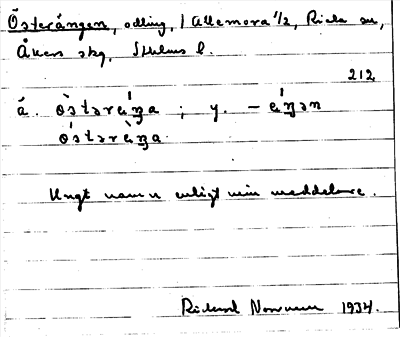 Österängen, odling, i Allmora 1/2, Riala sn,
Åkers skg, Sthlms l.
212
ä. òstəreŋ́a ; y. - eŋ́ən
ó́stərèŋa
Ungt namn enligt min meddelare.
Rickard Norrman 1934.